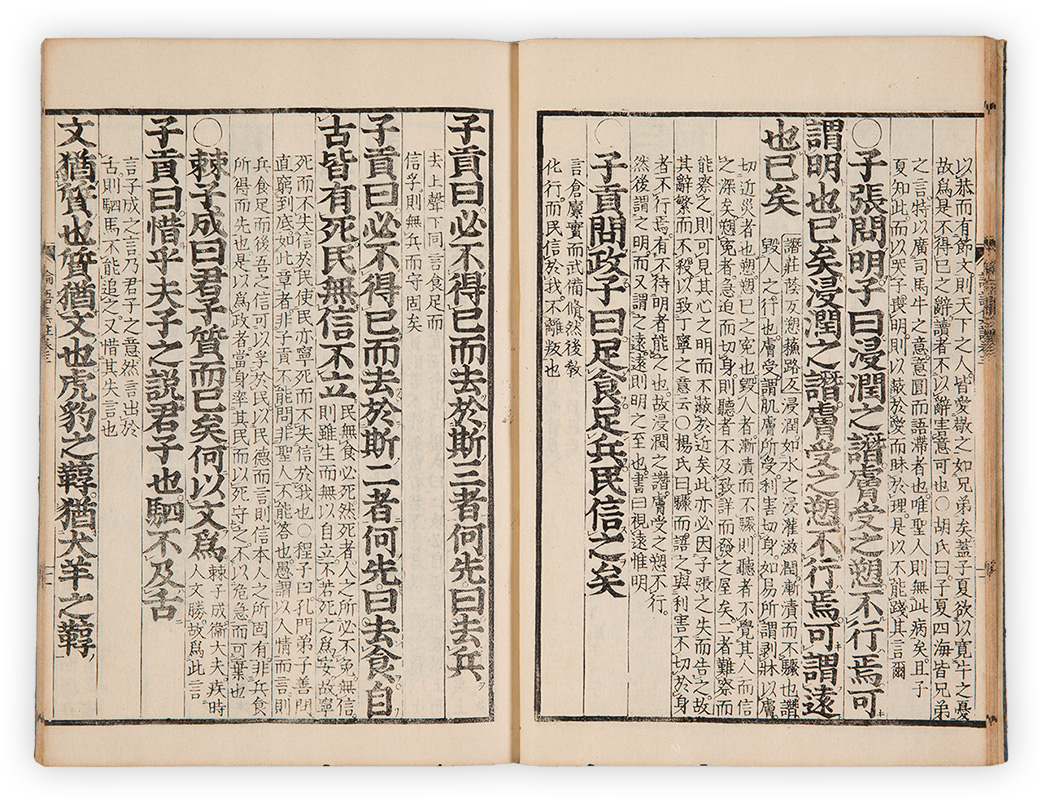 以恭而有節文則天下之人皆愛敬之如兄弟矣蓋子夏欲以寬牛之憂
故爲是不得已之辭讀者不以辭害意可也○胡氏曰子夏四海皆兄弟
之言特以廣司馬牛之意意圓而語滯者也唯聖人則無此病矣且子
夏知此而以哭子喪明則以蔽於愛而昧於理是以不能踐其言爾
○子張問明子曰浸潤之譖膚受之愬不行焉可
謂明也已矣浸潤之譖膚受之愬不行焉可謂遠
也已矣
譖莊蔭反愬蘇路反浸潤如水之浸灌滋潤漸漬而不驟也譖
毀人之行也膚受謂肌膚所受利害切身如易所謂剥牀以膚
切近災者也愬愬己之寃也毀人者漸漬而不驟則聽者不覺其入而信
之深矣愬寃者急迫而切身則聽者不及致詳而發之暴矣二者難察而
能察之則可見其心之明而不蔽於近矣此亦必因子張之失而告之故
其辭繁而不殺以致丁寧之意云○楊氏曰驟而語之與利害不切於身
者不行焉有不待明者能之也故浸潤之譖膚受之愬不行
然後謂之明而又謂之遠遠則明之至也書曰視遠惟明
○子貢問政子曰足食足兵民信之矣
言倉廩實而武備脩然後敎
化行而民信於我不離叛也
子貢曰必不得已而去於斯三者何先曰去兵
去上聲下同言食足而
信孚則無兵而守固矣
子貢曰必不得已而去於斯二者何先曰去食自
古皆有死民無信不立
民無食必死然死者人之所必不免無信
則雖生而無以自立不若死之爲安故寧
死而不失信於民使民亦寧死而不失信於我也○程子曰孔門弟子善問
直窮到底如此章者非子貢不能問非聖人不能答也愚謂以人情而言則
兵食足而後吾之信可以孚於民以民德而言則信本人之所固有非兵食
所得而先也是以爲政者當身率其民而以死守之不以危急而可棄也
○棘子成曰君子質而已矣何以文爲
棘子成衛大夫疾時
人文勝故爲此言
子貢曰惜乎夫子之說君子也駟不及舌
言子成之言乃君子之意然言出於
舌則駟馬不能追之又惜其失言也
文猶質也質猶文也虎豹之鞟猶犬羊之鞟